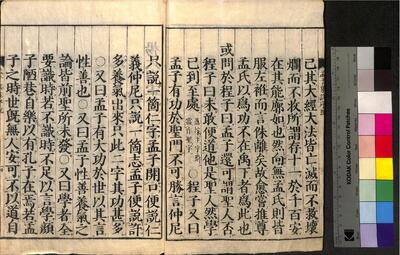 己其大經大法皆亡滅而不救壞
爛而不收所謂存十一於千百安
在其能廓如也然向無孟氏則皆
服左衽而言侏離矣故愈嘗推尊
孟氏以為功不在禹下者為此也
或問於程子曰孟子還可謂聖人否
程子曰未敢便道他是聖人然學
已到至處
○程子又曰
孟子有功於聖門不可勝言仲尼
只說一箇仁字孟子開口便說仁
義仲尼只說一箇志孟子便說許
多養氣出來只此二字其功甚多
○又曰孟子有大功於世以其言
性善也○又曰孟子性善養氣之
論皆前聖所未發○又曰學者全
要識時若不識時不足以言學顏
子陋巷自樂以有孔子在焉若孟
子之時世既無人安可不以道自
KODAK Color Control Patches